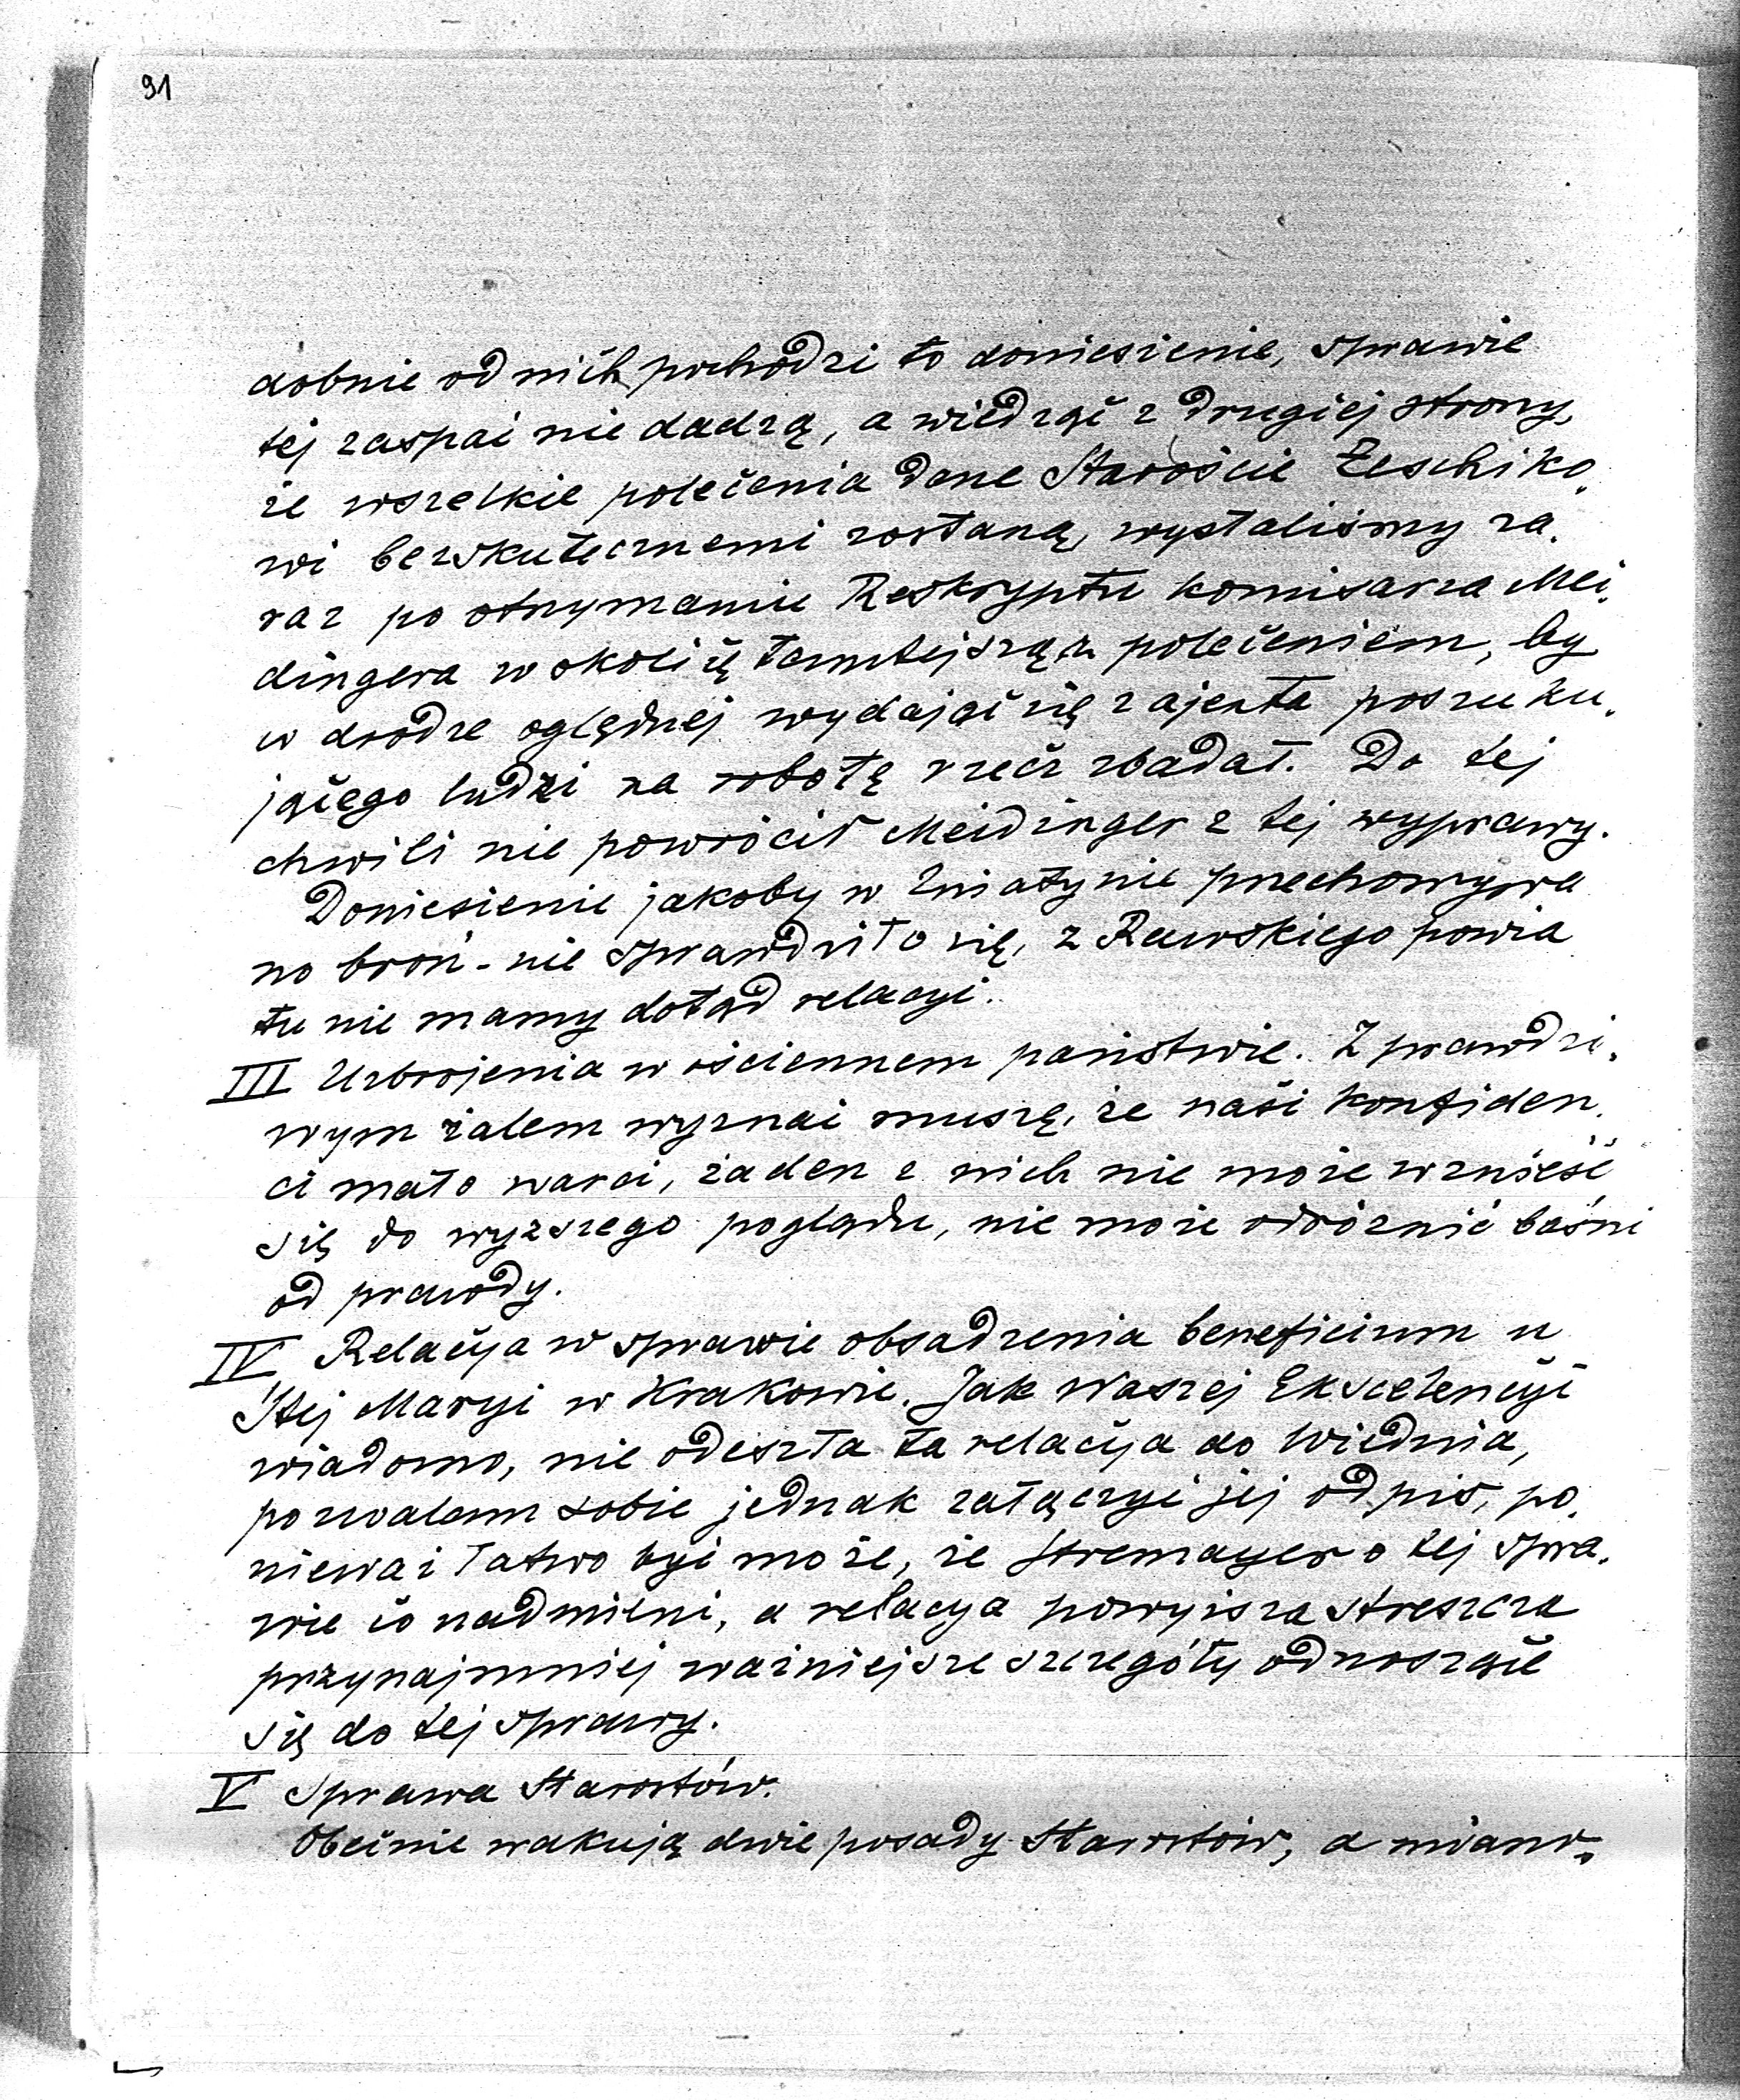 91
dobnie od nich pochodzi to doniesienie, sprawie
tej zaspać nie dadzą, a wiedząc z drugiej strony,
że wszelkie polecenia dane Staroście Zeschiko.
wi bezskutecznemi zostaną, wysłaliśmy za.
raz po otrzymaniu Reskryptu komisarza Mei.
dingera w okolicę tamtejszą z poleceniem, by
w drodze oględnej wydając się z ajenta poszuku.
jącego ludzi na robotę rzecz zbadał. Do tej
chwili nie powrócił Meidinger z tej wyprawy.
Doniesienie jakoby w Śniatynie przechowywa
no broń - nie sprawdziło się, z Rawskiego powia
tu nie mamy dotąd relacyi.
III Uzbrojenia w ościennem państwie. Z prawdzi.
wym żalem wyznać muszę, że nasi konfiden.
ci mało warci, żaden z nich nie może wznieść
się do wyższego poglądu, nie może odróżnić baśni
od prawdy.
IV Relacya w sprawie obsadzenia beneficium u
Stej Maryi w Krakowie. Jak Waszej Ekscelencyi
wiadomo, nie odeszła ta relacya do Wiednia,
pozwalam sobie jednak załączyć jej odpis, po.
nieważ łatwo być może, że Stremayer o tej spra.
wie co nadmieni, a relacya powyższa streszcza
przynajmniej ważniejsze szczegóły odnoszące
się do tej sprawy.
V Sprawa Starostów.
Obecnie wakują dwie posady Starostów, a miano.